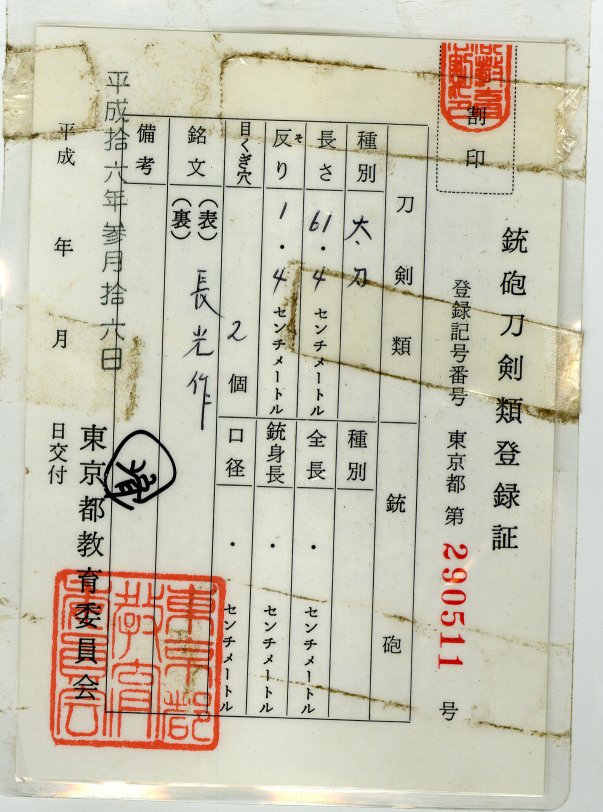 銃砲刀剣類登録証
登録記号番号 東京都 第 290511 号
割印
刀剣類
銃砲
種別 太刀
種別
長さ 61・4 センチメートル
全長 ・ センチメートル
反り 1・4 センチメートル
そ
銃身長 ・ センチメートル
目くぎ穴 2 個
口径 ・ センチメートル
銘文 (表) 長光作
(裏)
備考
平成拾六年参月拾六日
平成 年 月 日交付
東京都教育委員会
東京都教育委員会